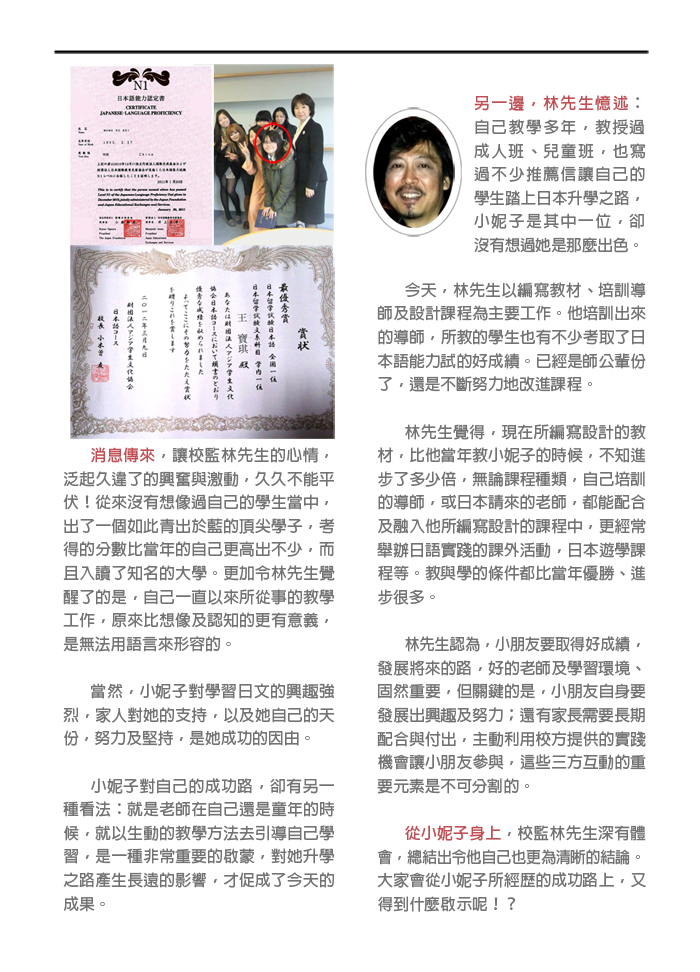 N1
日本語能力認定書
CERTIFICATE
JAPANESE-LANGUAGE PROFICIENCY
This is to certify that the person named above has passed
Level N1 of the Japanese-Language Proficiency Test given in
December 2010, jointly administered by the Japan Foundation
and Japan Educational Exchanges and Services.
賞状
最優秀賞
日本留学試験日本語 全国一位
日本留学試験文系科目 学内一位
王 寶琪 殿
あなたは財団法人アジア学生文化
協会日本語コースにおいて頭書のとおり
優秀な成績を収められました
よってここにその努力をたたえ賞状
を贈りこれを賞します
二〇一二年三月九日
財団法人アジア学生文化協会
日本語コース
消息傳來，讓校監林先生的心情，
泛起久違了的興奮與激動，久久不能平
伏！從來沒有想像過自己的學生當中，
出了一個如此青出於藍的頂尖學子，考
得的分數比當年的自己更高出不少，而
且入讀了知名的大學。更加令林先生覺
醒了的是，自己一直以來所從事的教學
工作，原來比想像及認知的更有意義，
是無法用語言來形容的。
當然，小妮子對學習日文的興趣強
烈，家人對她的支持，以及她自己的天
份，努力及堅持，是她成功的因由。
小妮子對自己的成功路，卻有另一
種看法：就是老師在自己還是童年的時
候，就以生動的教學方法去引導自己學
習，是一種非常重要的啟蒙，對她升學
之路產生長遠的影響，才促成了今天的
成果。
另一邊，林先生憶述：
自己教學多年，教授過
成人班、兒童班，也寫
過不少推薦信讓自己的
學生踏上日本升學之路，
小妮子是其中一位，卻
沒有想過她是那麼出色。
今天，林先生以編寫教材、培訓導
師及設計課程為主要工作。他培訓出來
的導師，所教的學生也有不少考取了日
本語能力試的好成績。已經是師公輩份
了，還是不斷努力地改進課程。
林先生覺得，現在所編寫設計的教
材，比他當年教小妮子的時候，不知進
步了多少倍，無論課程種類，自己培訓
的導師，或日本請來的老師，都能配合
及融入他所編寫設計的課程中，更經常
舉辦日語實踐的課外活動，日本遊學課
程等。教與學的條件都比當年優勝、進
步很多。
林先生認為，小朋友要取得好成績，
發展將來的路，好的老師及學習環境、
固然重要，但關鍵的是，小朋友自身要
發展出興趣及努力；還有家長需要長期
配合與付出，主動利用校方提供的實踐
機會讓小朋友參與，這些三方互動的重
要元素是不可分割的。
從小妮子身上，校監林先生深有體
會，總結出令他自己也更為清晰的結論。
大家會從小妮子所經歷的成功路上，又
得到什麼啟示呢！？